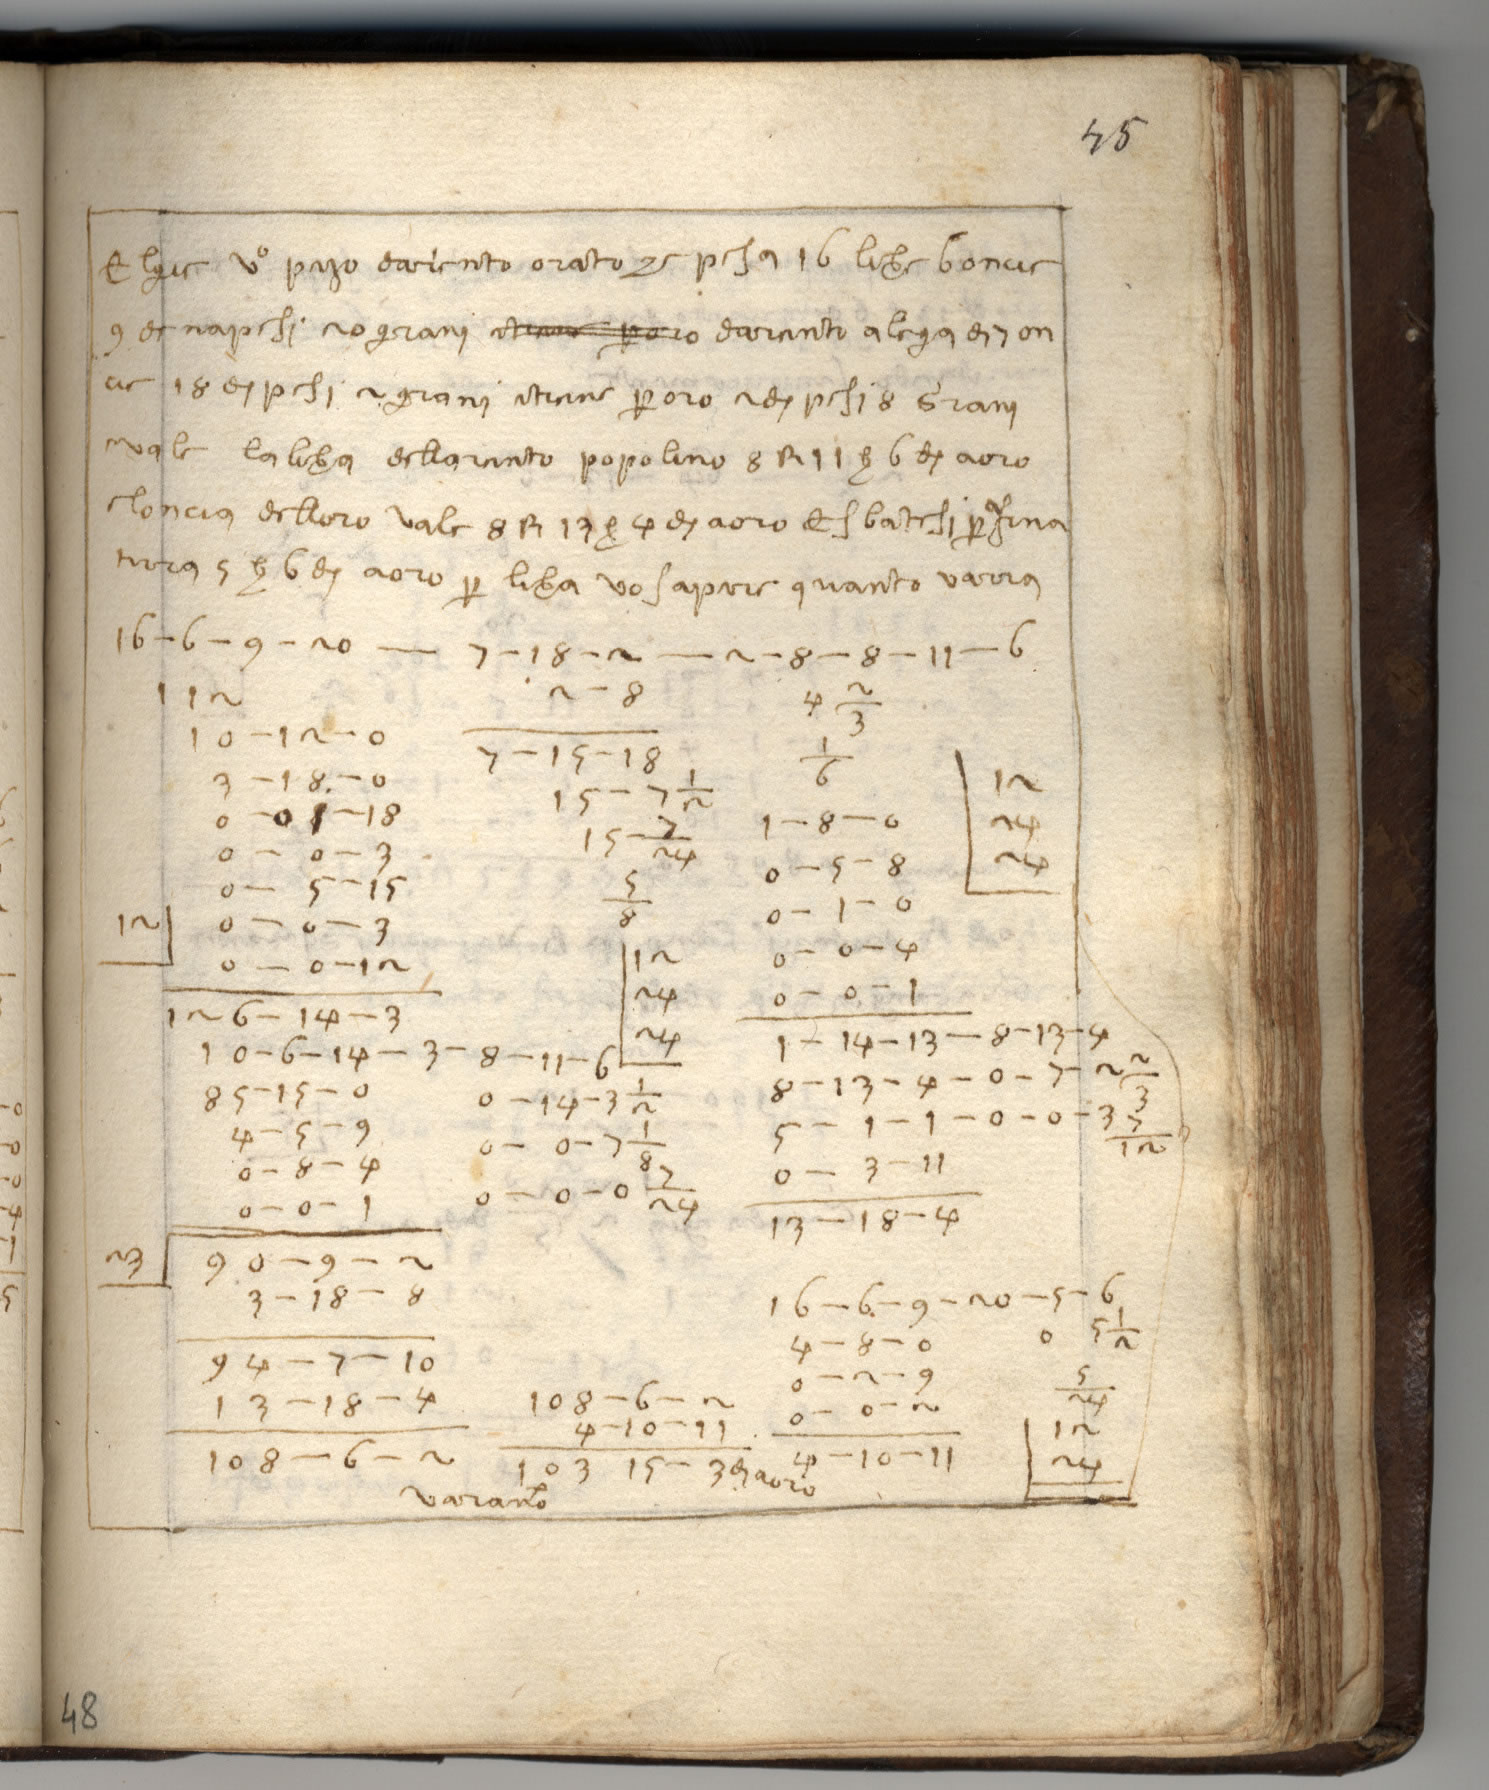 45
Elgie vº pezo dariento orato che pesa 16 libre 6 oncie
9 denapesi 20 grani dariento alega di 7 on
cie 18 di pesi 2 grani etiene p oro 2 di pesi 8 Grani
evale la libra dellariento popolino 8 R 11 β 6 di aoro
eloncia delloro vale 8 R 13 β 4 di aoro Esbatesi p afina
tura 5 β 6 di aoro p libra vo sapere quanto varra
16-6-9-20 — 7-18-2 — 2-8-8-11-6
112
2-8
4 2/3
10-12-0
7-15-18
1/6
3-18-0
15-7 1/2
12
0-01-18
15-7/24
1-8-0
24
0-0-3
0-5-8
24
0-5-15
5/8
0-1-0
12
0-0-3
12
0-0-4
0-0-12
24
0-0-1
126-14-3
24
1-14-13-8-13-4
10-6-14-3-8-11-6
8-13-4-0-7-2 2/3
85-15-0
0-14-3 1/2
5-1-1-0-0-3 5/12
4-5-9
0-0-7 1/8
0-3-11
0-8-4
0-0-0 7/24
13-18-4
0-0-1
23
90-9-2
3-18-8
16-6-9-20-5-6
94-7-10
4-8-0
0 5 1/2
13-18-4
108-6-2
0-2-9
5/24
4-10-11
0-0-2
12
108-6-2
103 15-3 di aoro
4-10-11
24
varanto
48